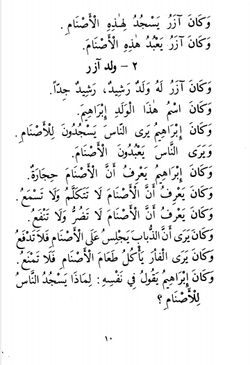 وَكَانَ آزَرُ يَسْجُدُ لِهٰذِهِ الْأَصْنَامِ.
وَكَانَ آزَرُ يَعْبُدُ هٰذِهِ الْأَصْنَامَ.
٢ – ولد آزر
وَكَانَ آزَرُ لَهُ وَلَدٌ رَشِيدٌ، رَشِيدٌ جِدًّا.
وَكَانَ اسْمُ هٰذَا الْوَلَدِ إِبْرَاهِيمَ.
وَكَانَ إِبْرَاهِيمُ يَرَى النَّاسَ يَسْجُدُونَ لِلْأَصْنَامِ.
وَيَرَى النَّاسَ يَعْبُدُونَ الْأَصْنَامَ.
وَكَانَ إِبْرَاهِيمُ يَعْرِفُ أَنَّ الْأَصْنَامَ حِجَارَةٌ.
وَكَانَ يَعْرِفُ أَنَّ الْأَصْنَامَ لَا تَتَكَلَّمُ وَلَا تَسْمَعُ.
وَكَانَ يَعْرِفُ أَنَّ الْأَصْنَامَ لَا تَضُرُّ وَلَا تَنْفَعُ.
وَكَانَ يَرَى أَنَّ الذُّبَابَ يَجْلِسُ عَلَى الْأَصْنَامِ فَلَا تَدْفَعُ
وَكَانَ يَرَى الْفَأْرَ يَأْكُلُ طَعَامَ الْأَصْنَامِ فَلَا تَمْنَعُ.
وَكَانَ إِبْرَاهِيمُ يَقُولُ فِي نَفْسِهِ: لِمَاذَا يَسْجُدُ النَّاسُ
لِلْأَصْنَامِ؟
١٠